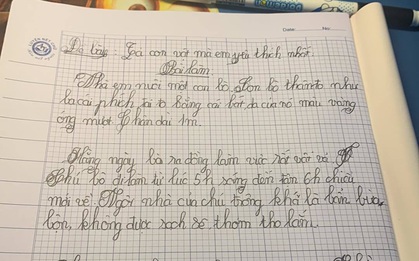 Date: No:
Đề bài: Tả con vật mà em yêu thích nhất.
Bài làm
Nhà em nuôi một con bò. Con bò thân to như
là cái phích, tai to bằng cái bát, da của nó màu vàng
óng mượt. Thân dài 1m.
Hằng ngày, bò ra đồng làm việc rất vất vả.
Chú bò đi làm từ lúc 5h sáng đến tận 6h chiều
mới về. Ngôi nhà của chú trông khá là bẩn bừa,
bộn, không được sạch sẽ thơm tho lắm.